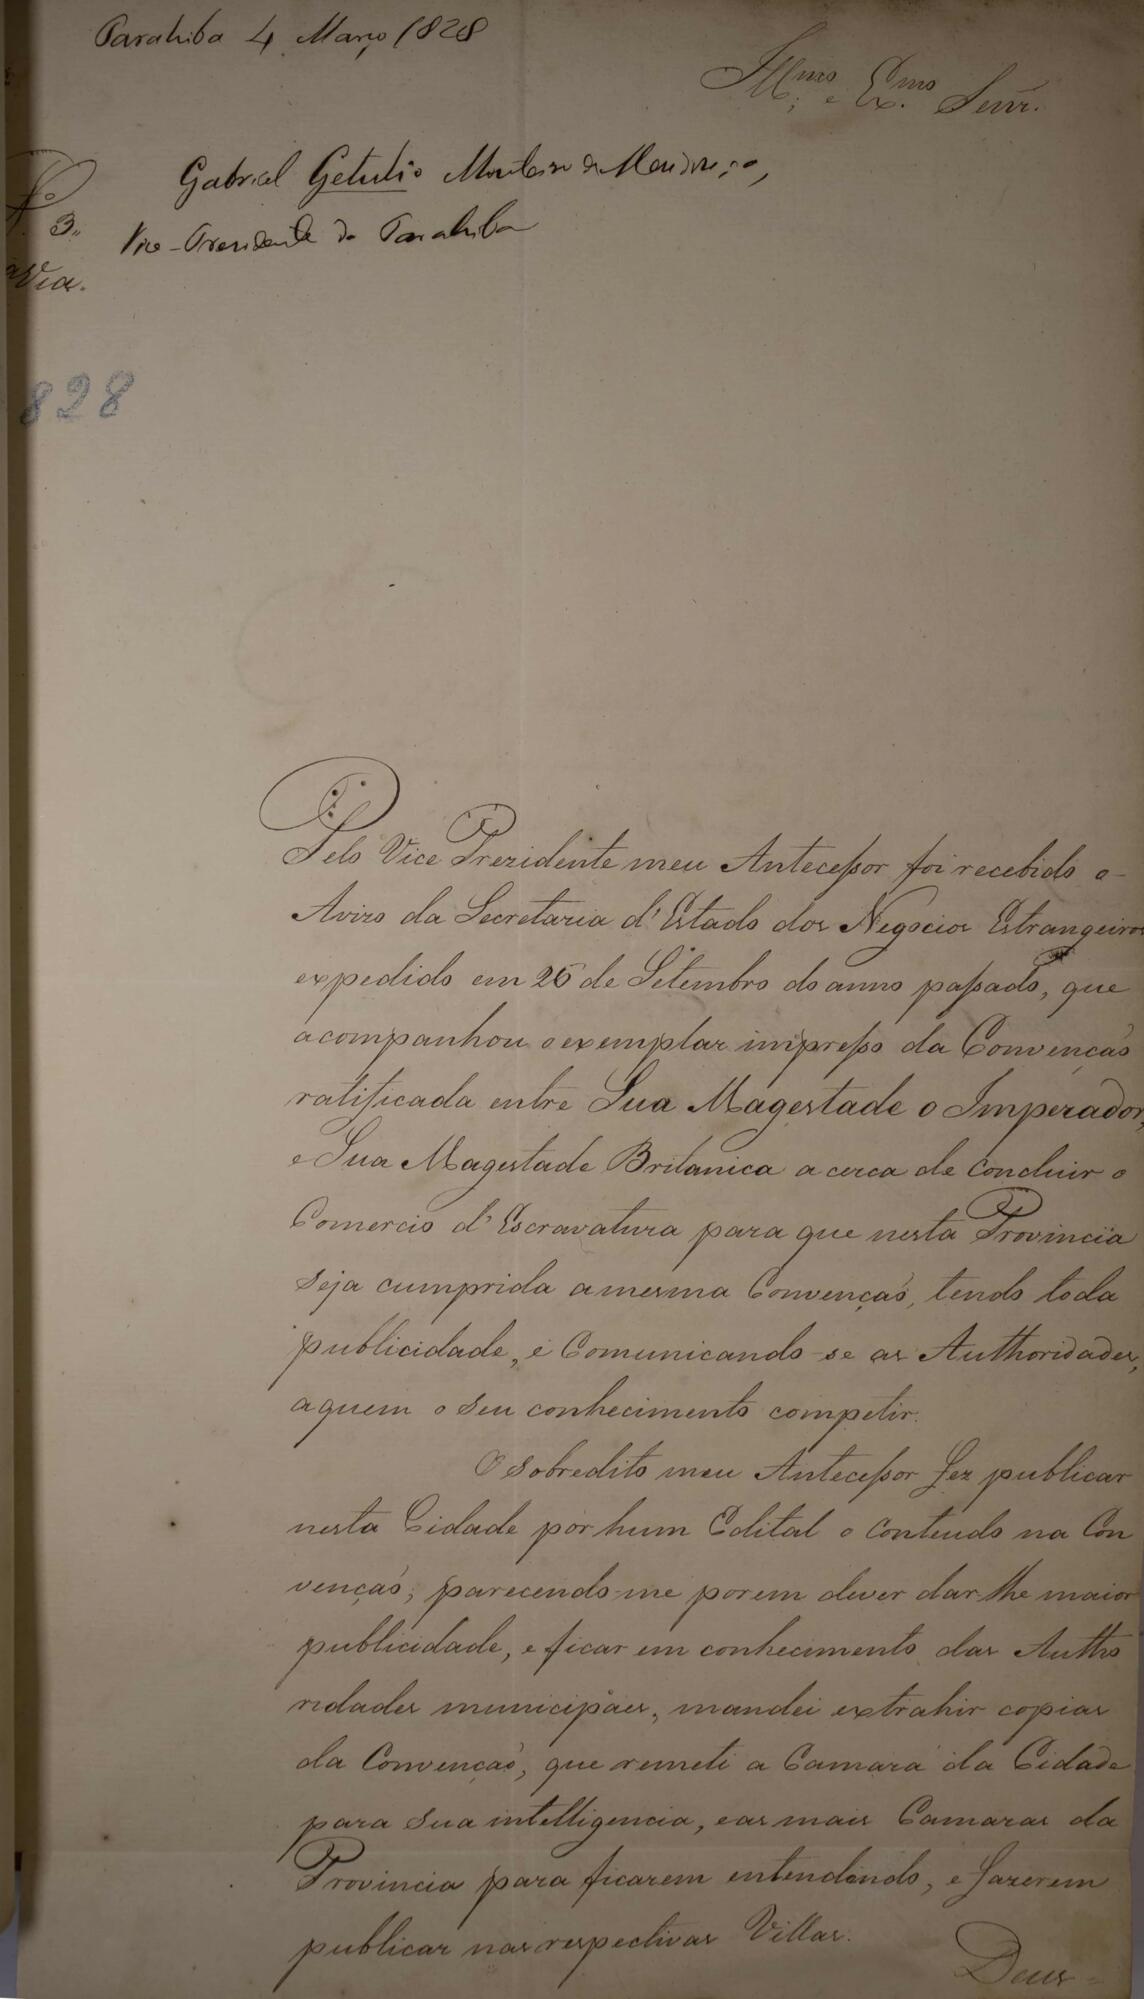 Parahiba 4 Março 1828
Illmo. e Exmo. Senr.
Gabriel Getulio Monteiro de Mendonça,
Vice-Presidente da Parahiba
Nº 3.
Via.
828
Pelo Vice Prezidente meu Antecessor foi recebido o
Avizo da Secretaria d'Estado dos Negocios Estrangeiros
expedido em 26 de Setembro do anno passado, que
acompanhou o exemplar impresso da Convenção
ratificada entre Sua Magestade o Imperador,
e Sua Magestade Britanica a cerca de concluir o
Comercio d'Escravatura para que nesta Provincia
seja cumprida a mesma Convenção, tendo toda
publicidade, e Comunicando-se as Authoridades,
a quem o seu conhecimento competir.
O sobredito meu Antecessor fez publicar
nesta Cidade por hum Edital o conteudo na Con
venção; parecendo-me porem dever dar-lhe maior
publicidade, e ficar em conhecimento das Autho
ridades municipáes, mandei extrahir copias
da Convenção, que remeti a Camara da Cidade
para sua intelligencia, e as mais Camaras da
Provincia para ficarem entendendo, e fazerem
publicar nas respectivas Villas.
Deus